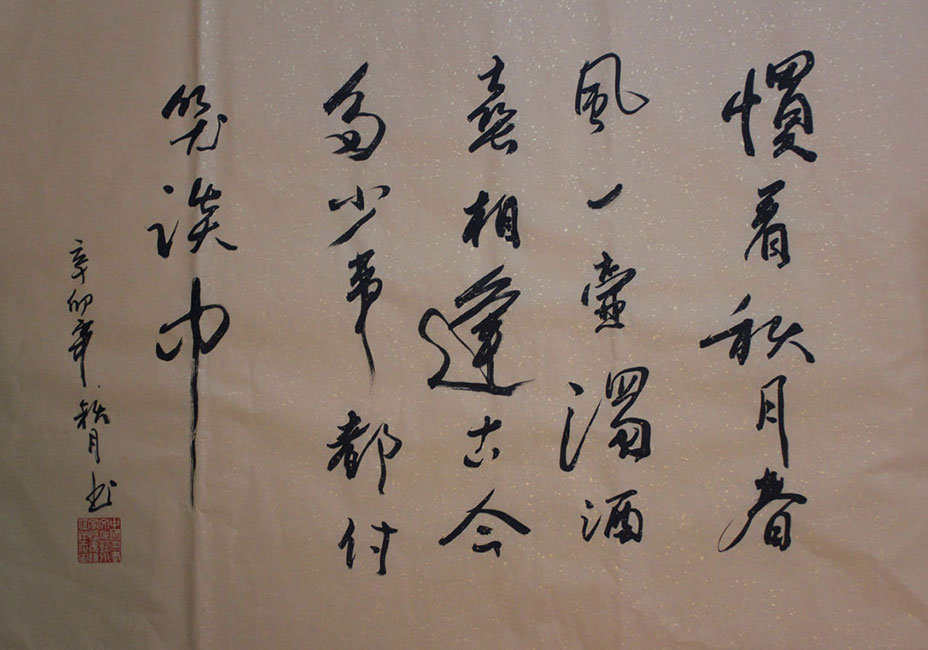 慣看秋月春
風一壺濁酒
喜相逢古今
多少事都付
笑談中
辛卯年秋月書